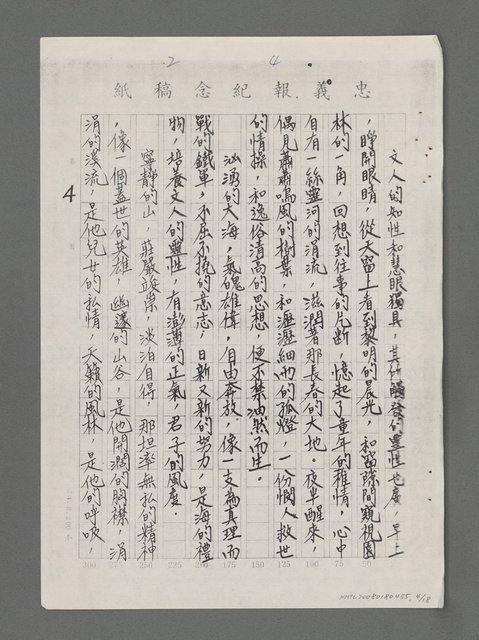 2
4
忠義報紀念稿紙
文人的知性和慧眼獨具，其所觸發的靈性也廣，早上
，睜開眼睛，從天窗上看到黎明的晨光，和窗隙間窺視園
林的一角，回想到往事的片斷，憶起了童年的稚情，心中
自有一絲靈河的涓流，滋潤著那長春的大地。夜半醒來，
偶見蕭蕭鳴風的樹葉，和瀝瀝細雨的孤燈，一份憫人救世
的情操，和逸俗清尚的思想，便不禁油然而生。
汹湧的大海，氣魄雄偉，自由奔放，像一支為真理而
戰的鐵軍，不屈不撓的意志，日新又新的努力，是海的禮
物，培養文人的靈性，有澎薄的正氣，君子的風度。
寧靜的山，莊嚴峻崇，淡泊自得，那坦率無私的精神
，像一個蓋世的英雄，幽邃的山谷，是他開濶的胸襟，涓
涓的溪流，是他兒女的私情，天籟的風林，是他的呼吸，
4
50
75
100
125
150
175
200
225
250
275
300
NMTL20080180455, 4/18